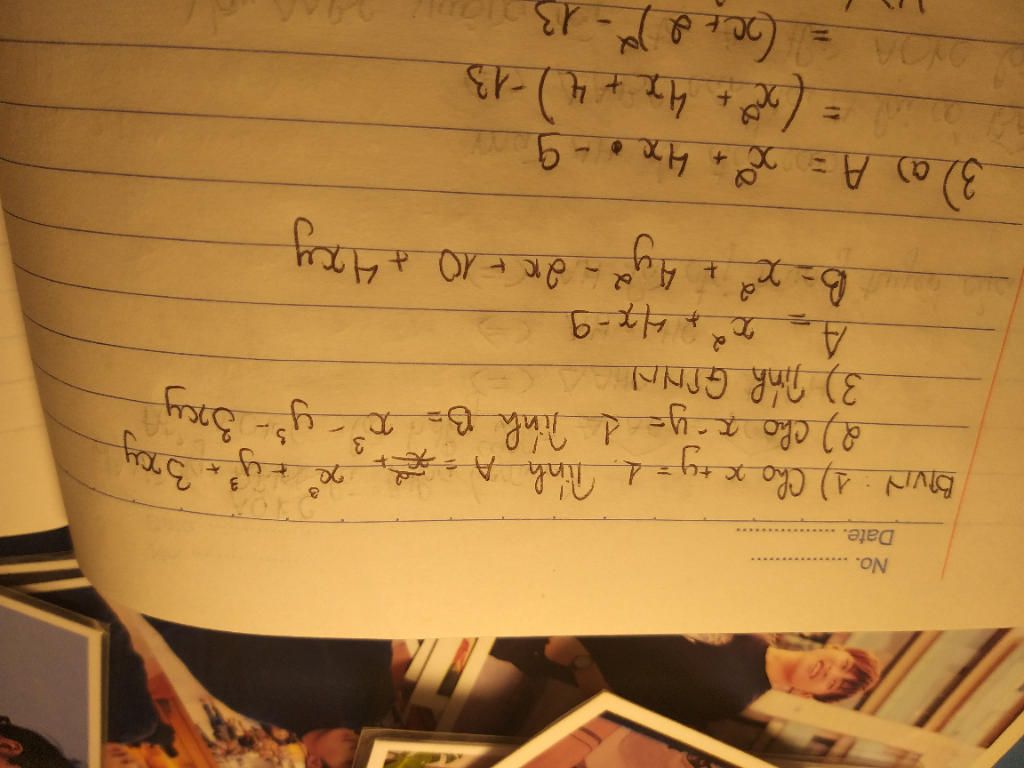 No. ................
Date. ................
BTVN: 1) Cho x + y = 1. Tính A = x³ + y³ + 3xy
2) Cho x - y = 1. Tính B = x³ - y³ - 3xy
3) Tính GTNN
A = x² + 4x - 9
B = x² + 4y² - 2x + 10 + 4xy
3) a) A = x² + 4x - 9
= (x² + 4x + 4) - 13
= (x + 2)² - 13